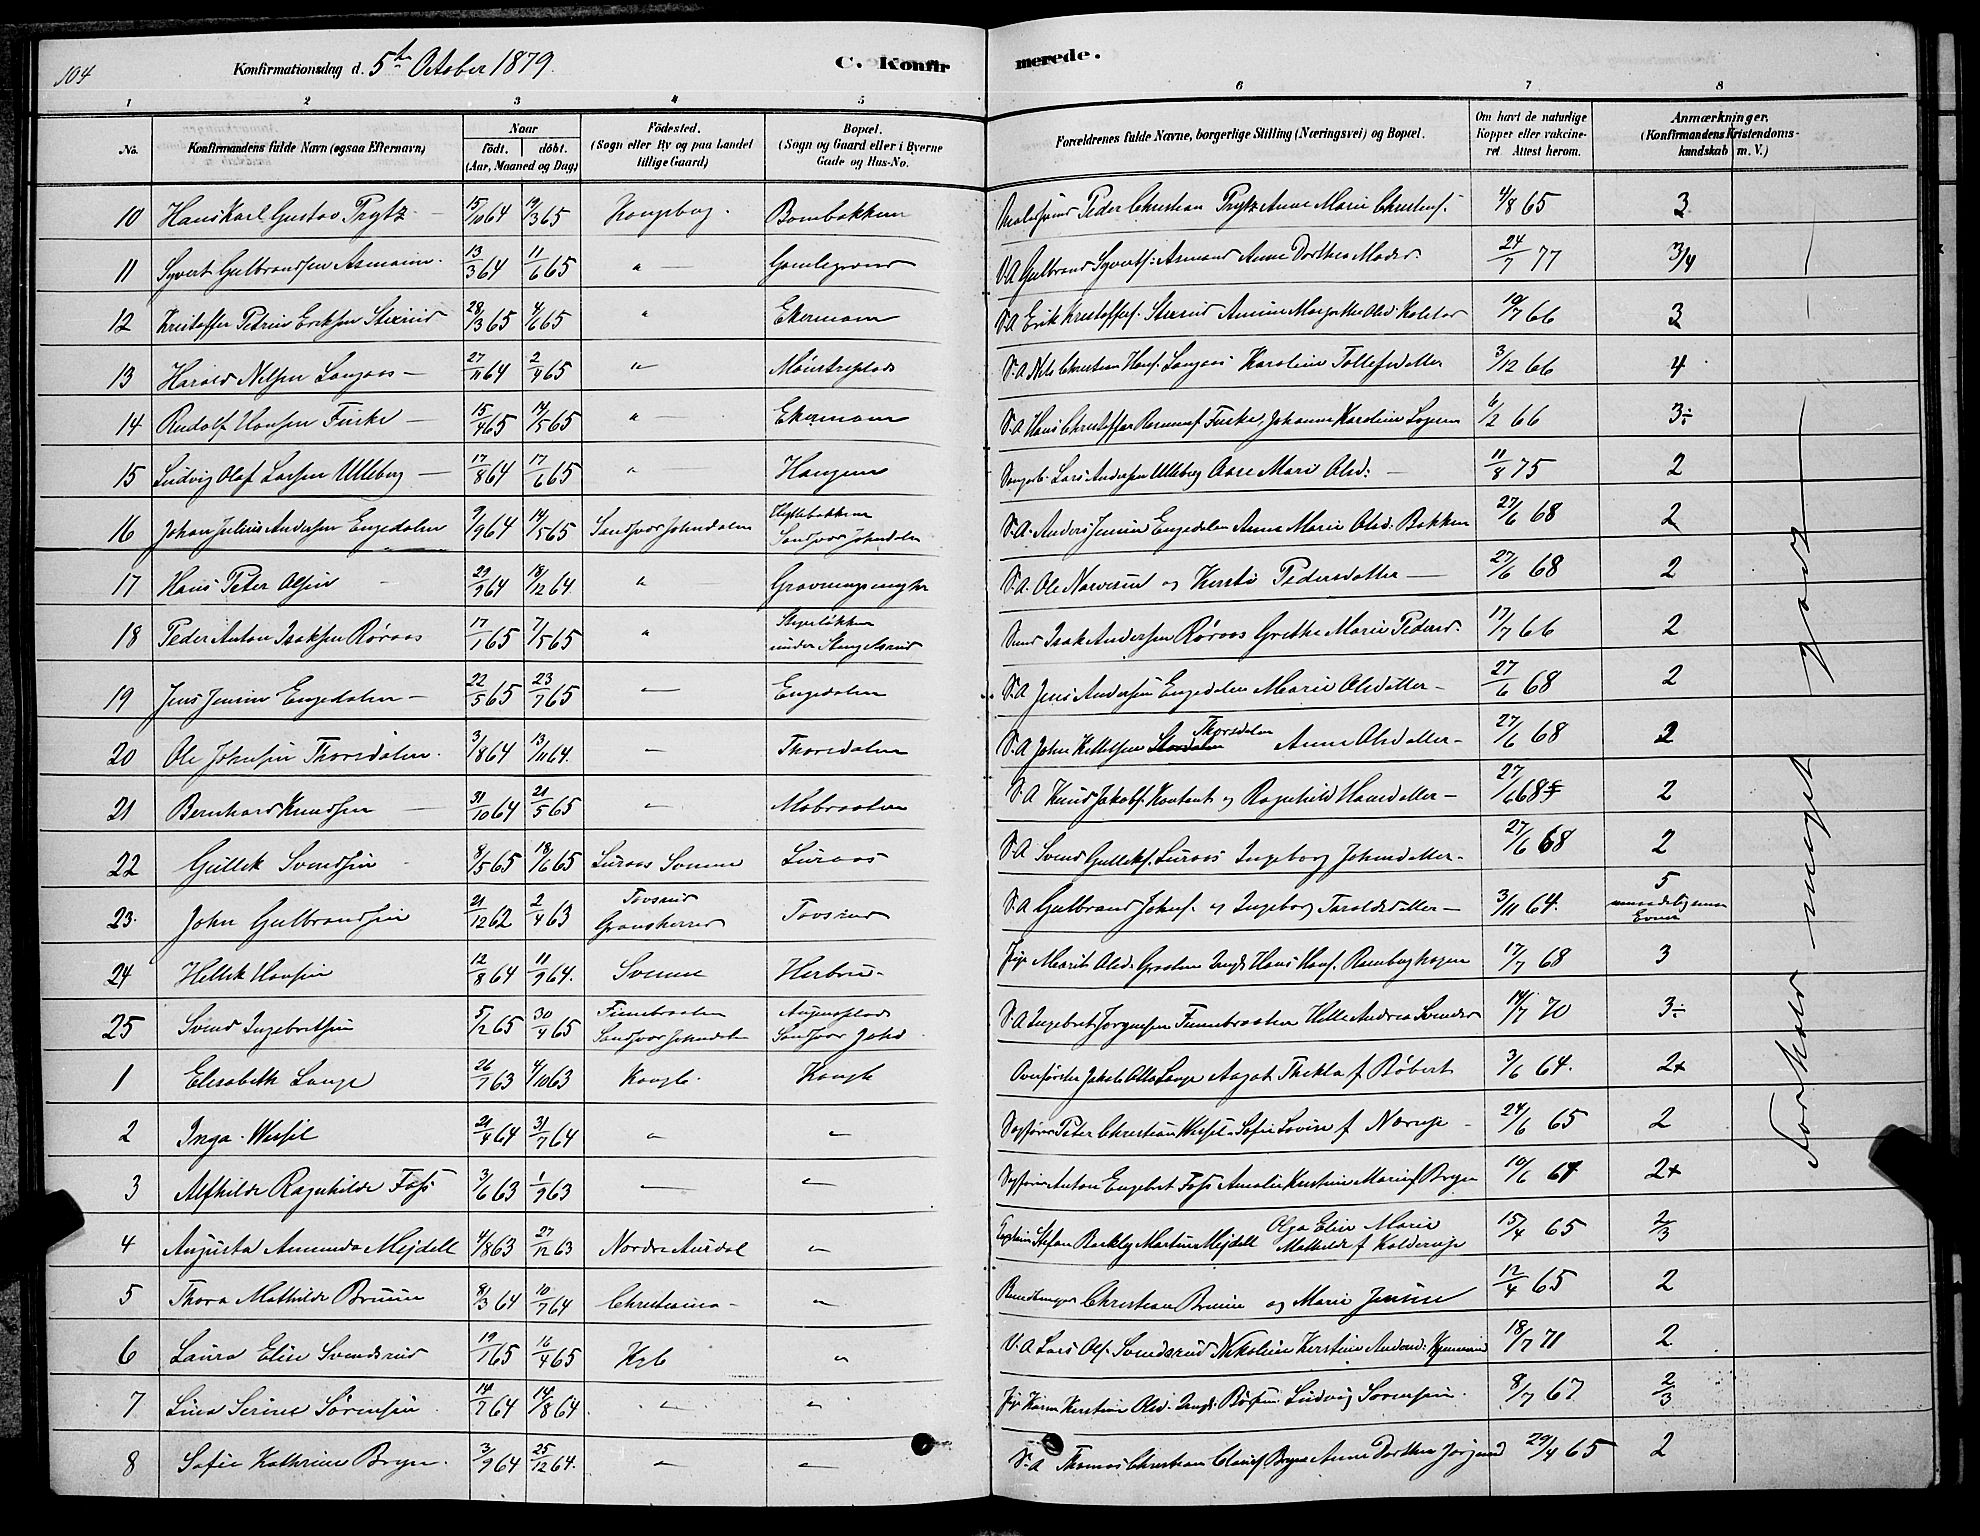 104
Konfirmationsdag d. 5te October 1879.
C. Konfirmerede.
1 2 3 4 5 6 7 8
No.
Konfirmandens fulde Navn (ogsaa Efternavn)
Naar
födt. döbt.
(Aar, Maaned og Dag)
Födested.
(Sogn eller By og paa Landet
tillige Gaard)
Bopæl.
(Sogn og Gaard eller i Byerne
Gade og Hus-No.
Forældrenes fulde Navne, borgerlige Stilling (Næringsvei) og Bopæl.
Om havt de naturlige
Kopper eller vakcine-
ret Attest herom.
Anmærkninger.
(Konfirmandens Kristendoms-
kundskab m. V.)
10 Hans Karl Gustav Prytz 15/10 64 19/3 65 Kongsberg. Bombakken Peder Christian Prytz Anne Marie Christens. 4/8 65 3
11 Syvert Gulbrandsen Asmann 13/3 64 11/6 65 " — Gamlegrend S.A Gulbrand Syverts. Asmand Anne Dorthea Mads. 24/7 77 3/4
12 Kristoffer Petrius Eriksen Stixrud 28/3 65 4/6 65 " Ekermoen S.A Erik Kristoffers. Stixrud Anine Margrethe Olsd. Kolstad 19/7 66 3
13 Harald Nilsen Langaas — 27/11 64 2/4 65 " Mønstreplads S.A Nils Christian Hans. Langaas Karoline Tollefsdatter 3/12 66 4
14 Rudolf Hansen Fiske — 15/4 65 14/5 65 " — Ekermoen S.A Hans Christoffer Rasmus. Fiske, Johanne Karoline 6/2 66 3÷
15 Ludvig Olaf Larsen Ulleberg — 17/8 64 17/6 65 " — Haugen Lars Andersen Ulleberg Aase Marie Olsd: — 11/8 75 2
16 Johan Julius Andersen Engedalen 9/9 64 14/5 65 Sandsvær Jondalen Hyttebakken Sandsvær Jondalen S.A. Anders Jensen Engedalen Anna Marie Olsd: Bakken 27/6 68 2
17 Hans Peter Olsen 29/9 64 18/12 64 " S.A. Ole Narverud og Kersti Pedersdatter — 27/6 68 2
18 Peder Anton Isaksen Røraas 17/1 65 7/5 65 " under Stengelsrud Isak Andersen Røraas Grethe Marie Peders. 17/7 66 2
19 Jens Jensen Engedalen — 22/5 65 23/7 65 — Engedalen S.A Jens Andersen Engedalen Marie Olsdatter — 27/6 68 2
20 Ole Johnsen Thorsdalen. 3/8 64 13/11 64. — Thorsdalen S.A John Kittelsen Thorsdalen Anne Olsdatter — 27/6 68 2
21 Bernhard Knudsen — 31/10 64 21/5 65 — Mobraaten S.A Knud Jakobs. Kontant og Ragnhild Hansdatter — 27/6 68 2
22 Gullik Svendsen 8/5 65 18/6 65 Luraas Svene Luraas S.A Svend Gulliks. Luraas Ingeborg Johnsdatter — 27/6 68 2
23. John Gulbrandsen 21/12 62 2/4 63 Tovsrud Gransherred Tovsrud S.A Gulbrand Johns. og Ingeborg Taraldsdatter — 3/11 64. 5 Evner
24 Hellik Hansen 12/8 64 11/9 64. Svene Herbru — Pige Marit Olsd. Graaten Ungk. Hans Hans. Ramberghagen 17/7 68 3
25 Svend Ingebretsen 5/2 65 30/4 65 Finnebraaten Sandsvær Jondalen Sandsvær Jond. S.A Ingebret Jørgensen Finnebraaten Helle Andrea Svends. 14/7 70 3÷
1 Elisabeth Lange 26/7 63 4/10 63 Kongb. Kongb Overførster Jakob Otto Lange Aagot Thekla f Bøbert 3/6 64. 2+
2 Inga Wessel 21/4 64 31/7 64 " " Sagfører Peter Christian Wessel Sofie Lovise f Nørup — 24/6 65 2
3 Alfhilde Ragnhilde Foss 3/6 63 1/9 63 — " Sagfører Anton Engebret Foss Amalie Kristine Marie f Bryn 10/6 64 2+
4 Augusta Amunda Mejdell 4/8 63 27/12 63 Nordre Aurdal " Captein Stefan Barkley Martin Mejdell Olga Elise Marie Mathilde f Kolderup 15/4 65 2/3
5 Thora Mathilde Bruun 8/3 64 10/7 64 Christiania — " Christian Bruun og Marie Jensen 12/4 65 2
6 Laura Elise Svendsrud 19/1 65 16/4 65 Kgb " S.A Lars Ols. Svendsrud Nikoline Kerstine 18/7 71 2
7 Lina Serine Sørensen 14/7 64 14/8 64 " — " Pige Karen Kerstine Olsd. Ungk: Ludvig Sørensen. 8/7 67 2/3
8 Sofie Kathrine Bryn. 3/9 64 25/12 64. " — S.A Thomas Christian Bryn Anne Dorthea 29/4 65 2
Forholdt meget godt